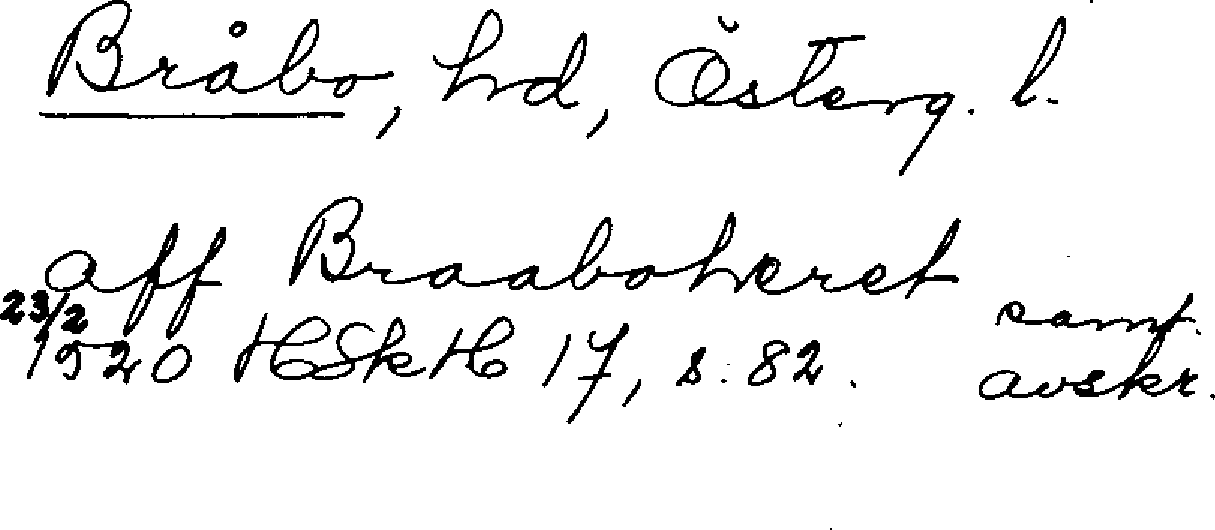 Bråbo, hd, Österg. l.
aff Braaboheret
23/2 samt.
1520 HSkH 17, s. 82. avskr.